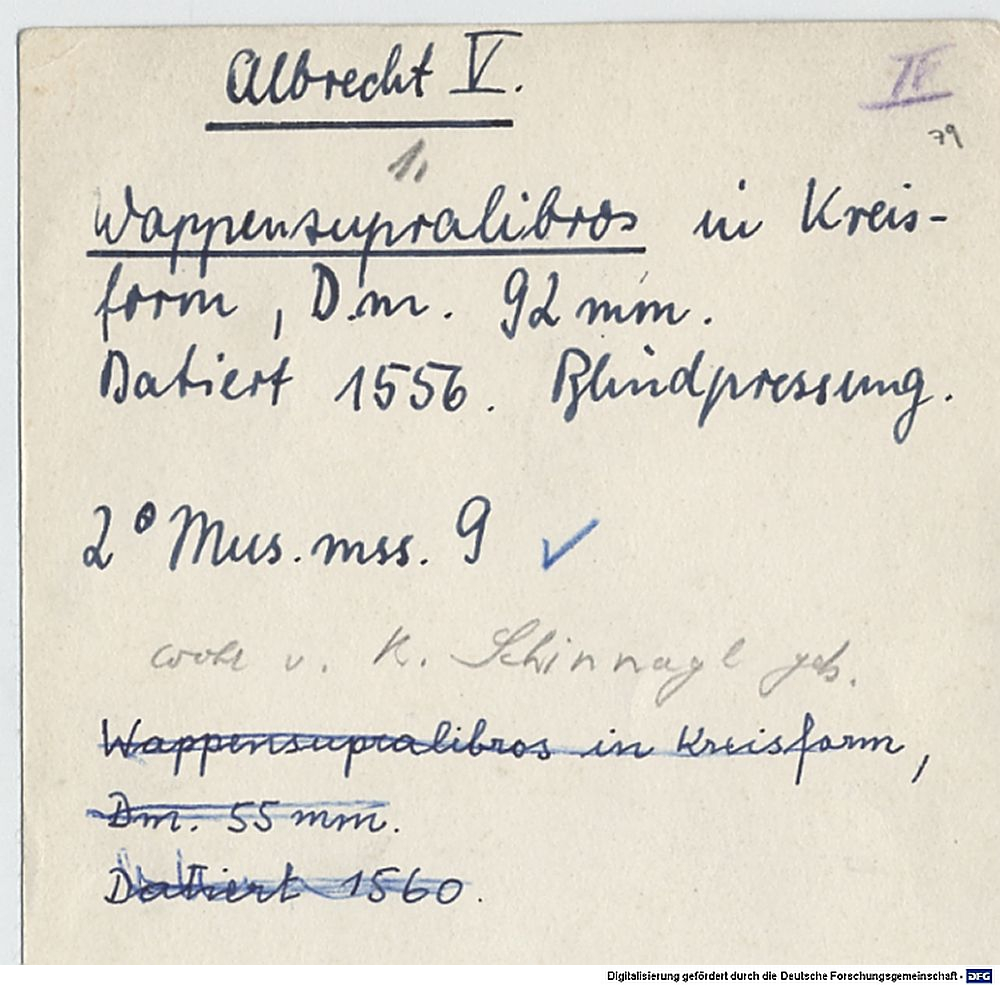 Albrecht V.
II
79
1.
Wappensupralibros in Kreis-
form, Dm. 92 mm.
Datiert 1556. Blindpressung.
2° Mus. mss. 9 ✓
wohl v. K. Schinnagl geb.
Wappensupralibros in Kreisform,
Dm. 55 mm.
Datiert 1560.
Digitalisierung gefördert durch die Deutsche Forschungsgemeinschaft - DFG